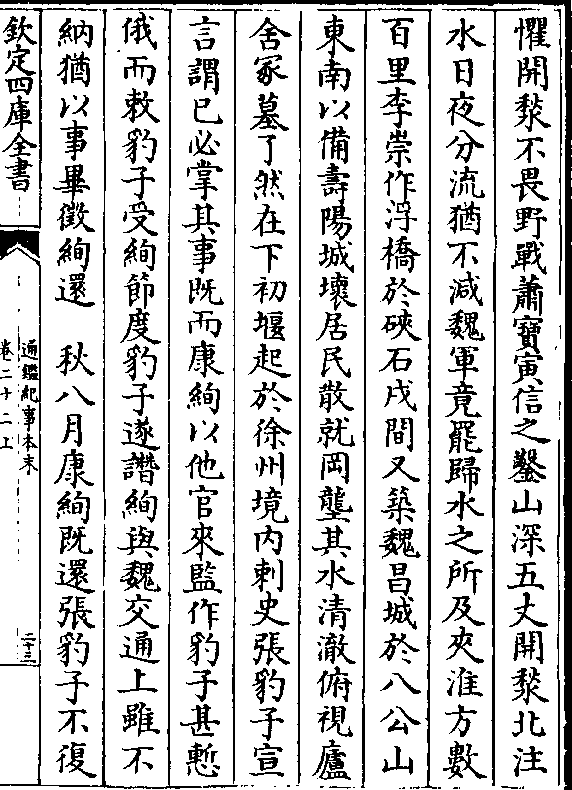 懼開湫不畏野戰蕭寶寅信之鑿山深五丈開湫北注
水日夜分流猶不減魏軍竟罷歸水之所及夾淮方數
百里李崇作浮橋於硤石戍間又築魏昌城於八公山
東南以備壽陽城壞居民散就岡壟其水清澈俯視廬
舍冢墓了然在下初堰起於徐州境内刺史張豹子宣
言謂已必掌其事既而康絢以他官來監作豹子甚慙
俄而敕豹子受絢節度豹子遂譖絢與魏交通上雖不
納猶以事畢徵絢還　秋八月康絢既還張豹子不復
欽定四庫全書
通鑑紀事本末
卷二十二上
二十三